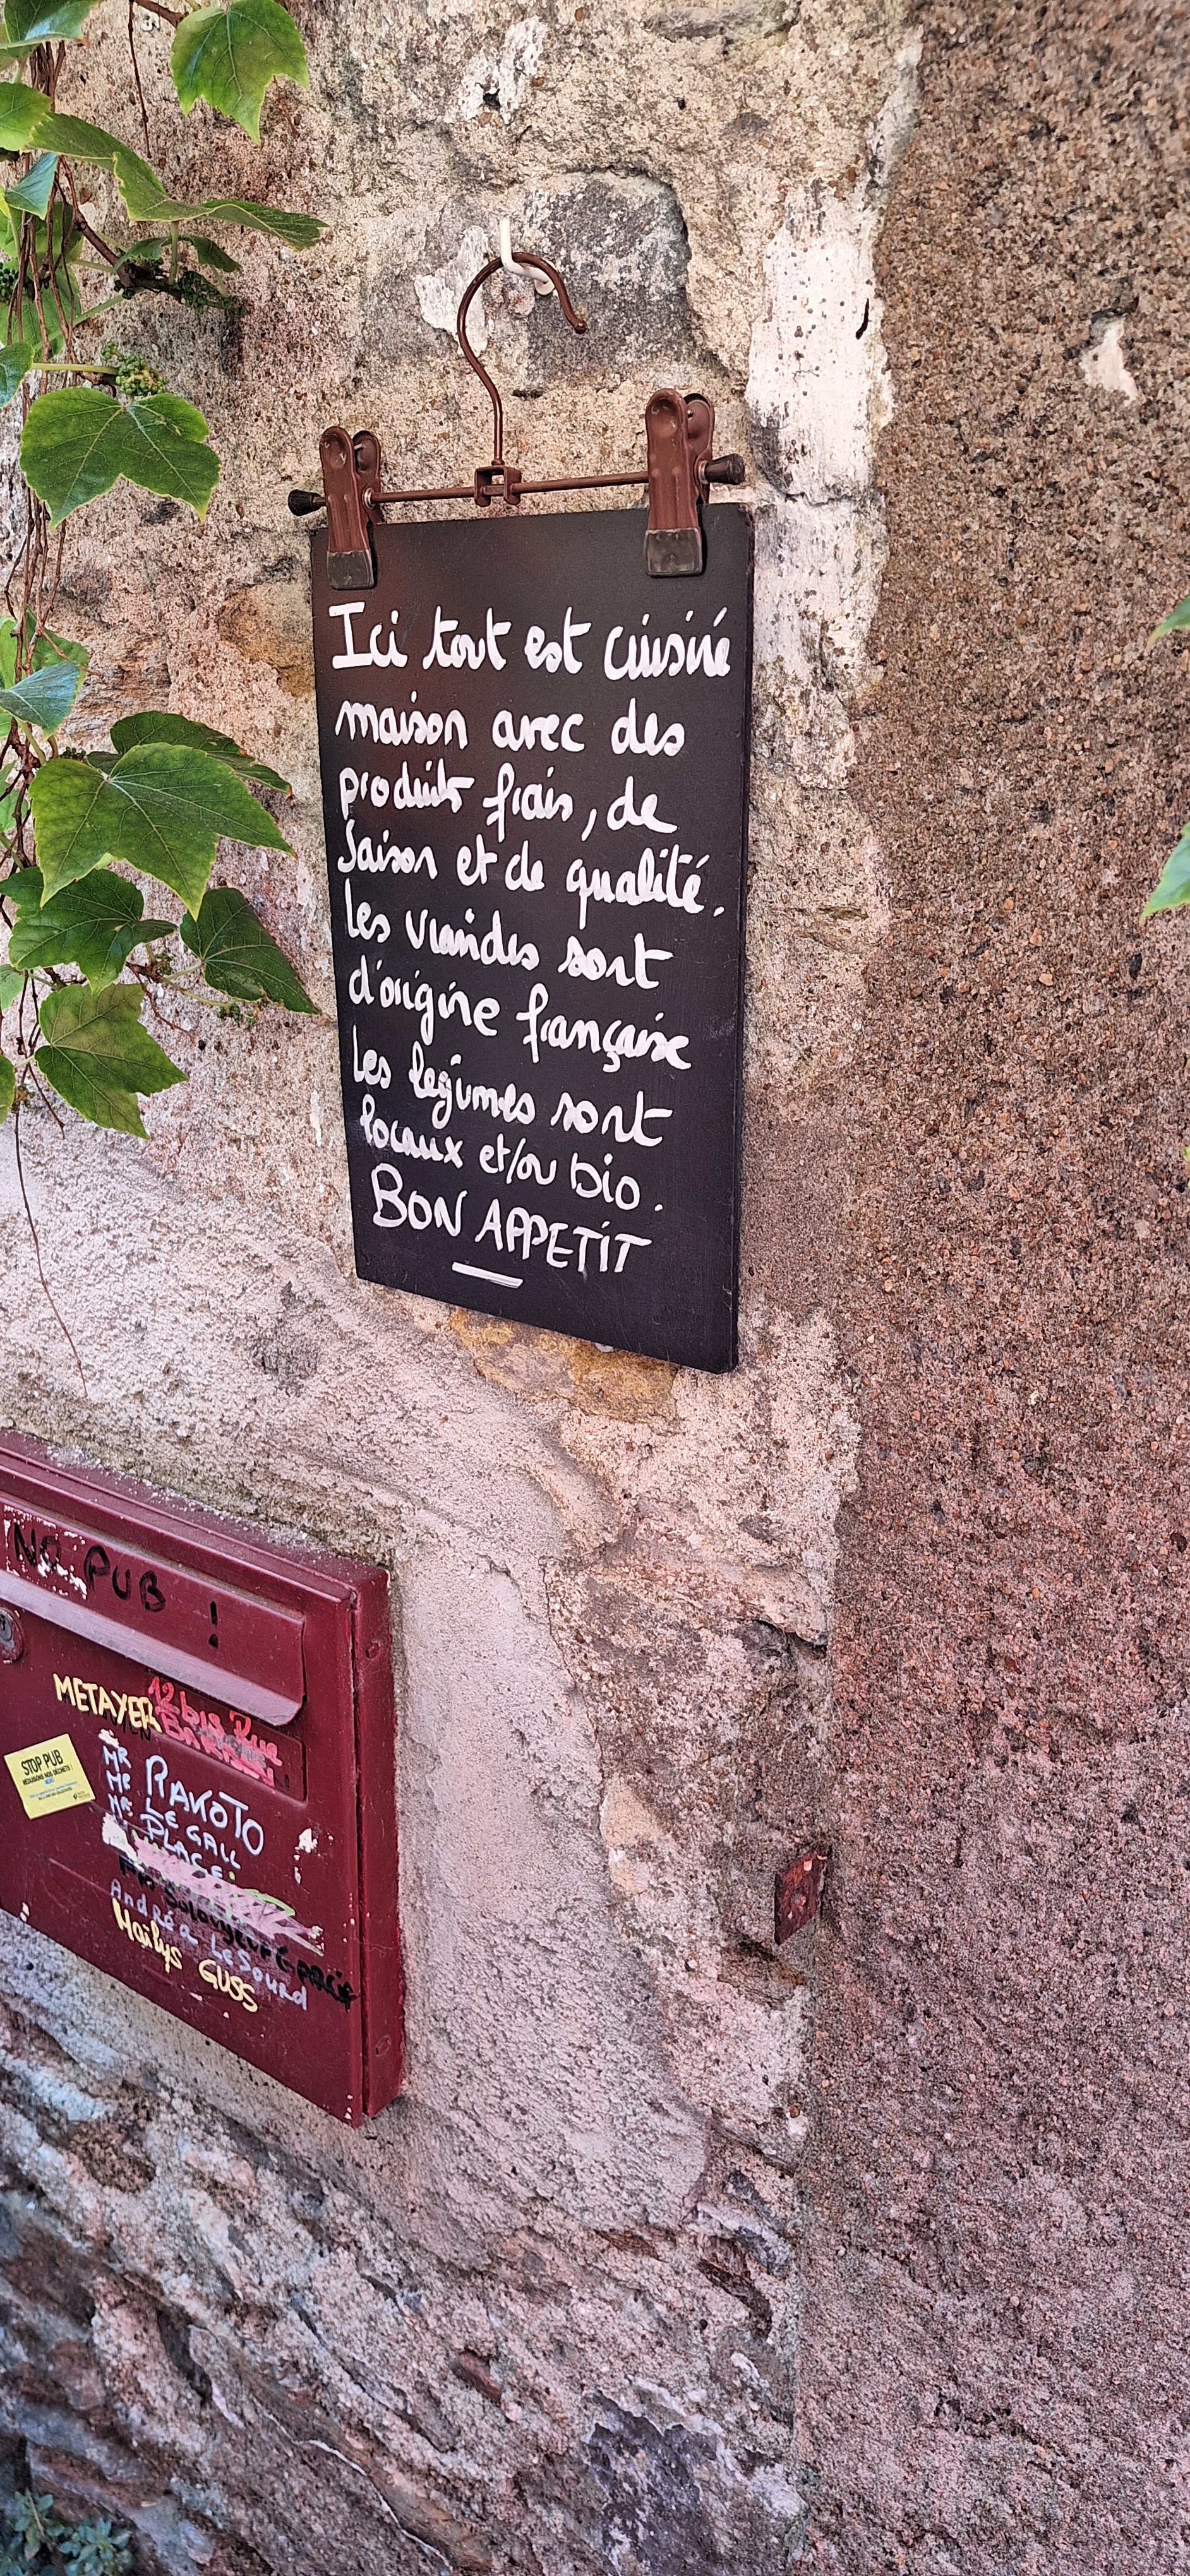 Ici tout est cuisiné
maison avec des
produits frais, de
Saison et de qualité.
Les viandes sont
d'origine française
Les legumes sont
locaux et/ou bio.
BON APPETIT
NO PUB !
METAYER
12 bis Rue
STOP PUB
MR RAKOTO
Mr LE GALL
Mr PLACE
Andréa LESOURD
Maïlys GUSS